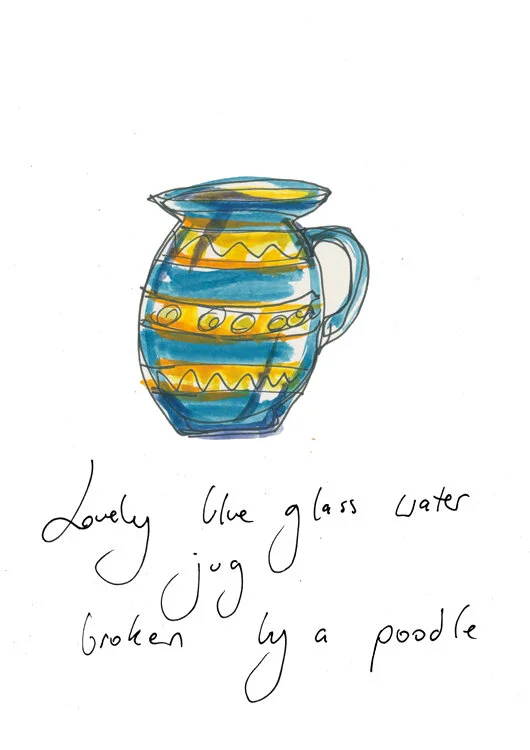 Lovely blue glass water
jug
broken by a poodle